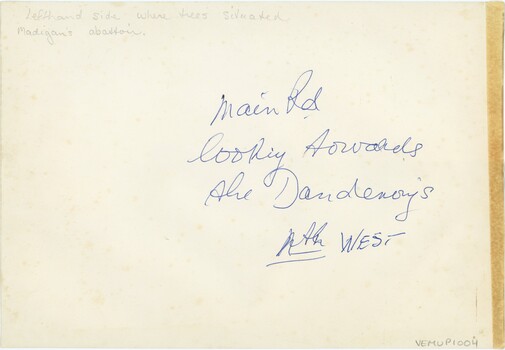 Lefthand side where trees situated
Madigan's abattoir.
Main Rd
looking towards
the Dandenongs
Nth WEST
VEMUP1004